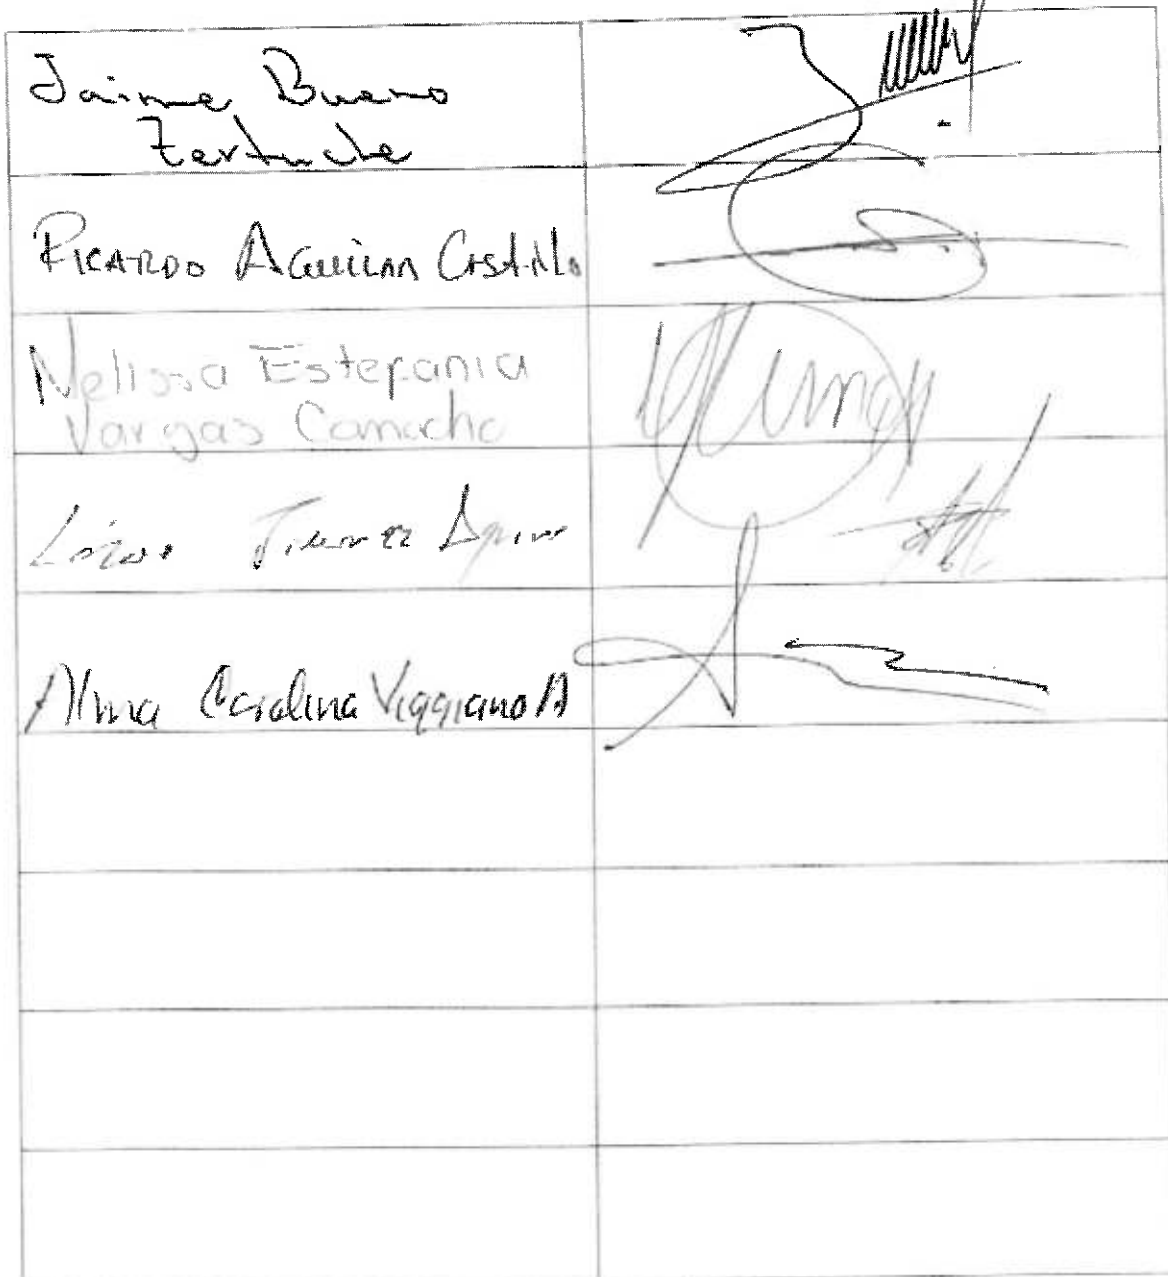 Jaime Bueno
Zertuche
RICARDO AGUILAR CASTILLO
Melissa Estefania
Vargas Camacho
Alma Carolina Viggiano A